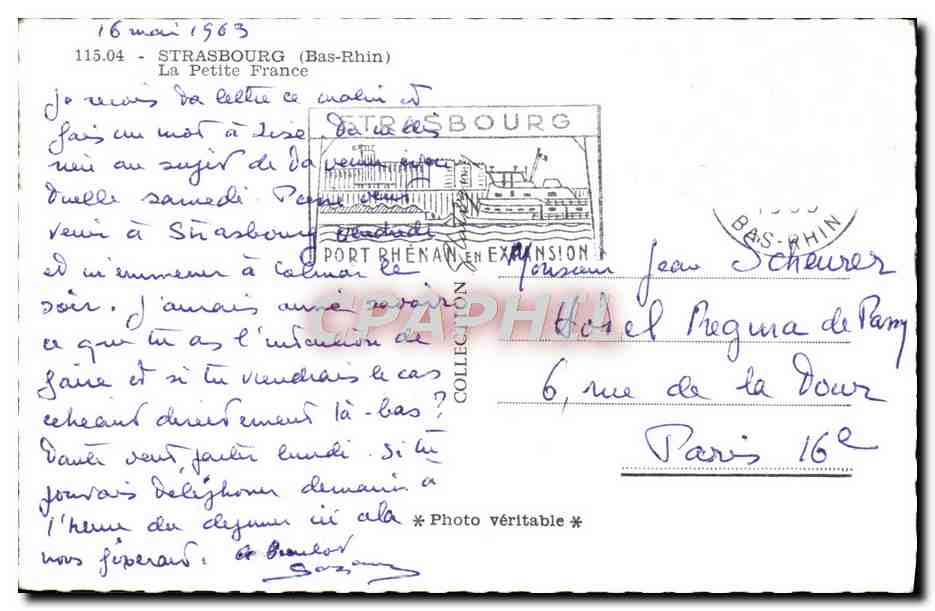 16 mai 1963
115.04 - STRASBOURG (Bas-Rhin)
La Petite France
je reçois ta lettre ce matin et
fais un mot à Lise
au sujet de ta venue
samedi. venir
venir à Strasbourg vendredi
et m'emmener à Colmar le
soir. J'aurais aimé savoir
ce que tu as l'intention de
faire et si tu viendrais le cas
écheant directement là-bas?
Tante veut partir lundi. Si tu
pouvais téléphoner demain à
l'heure du dejeuner ici cela
nous fixerait.
STRASBOURG
PORT RHÉNAN EN EXPANSION
BAS-RHIN
COLLECTION
CPAPHIL
Monsieur Jean Scheurer
Hôtel Regina de Passy
6, rue de la Tour
Paris 16e
* Photo véritable *